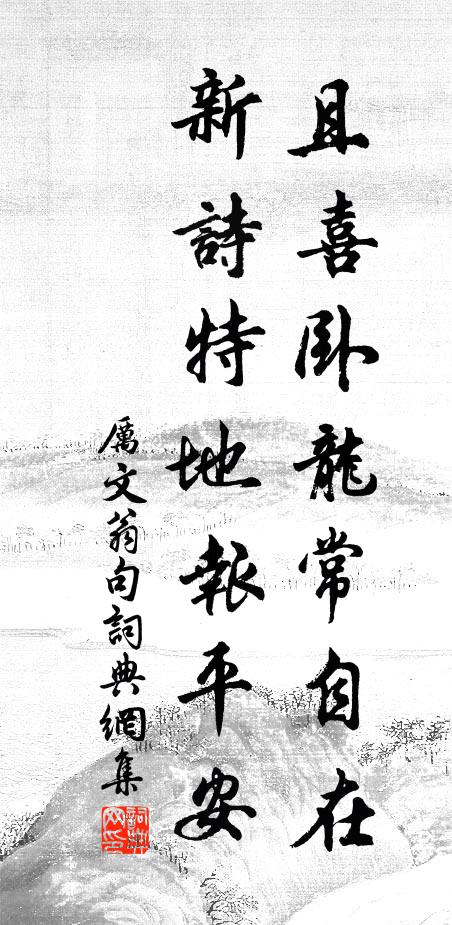 且喜卧龍常自在
新詩特地報平安
厲文翁句詞典網集